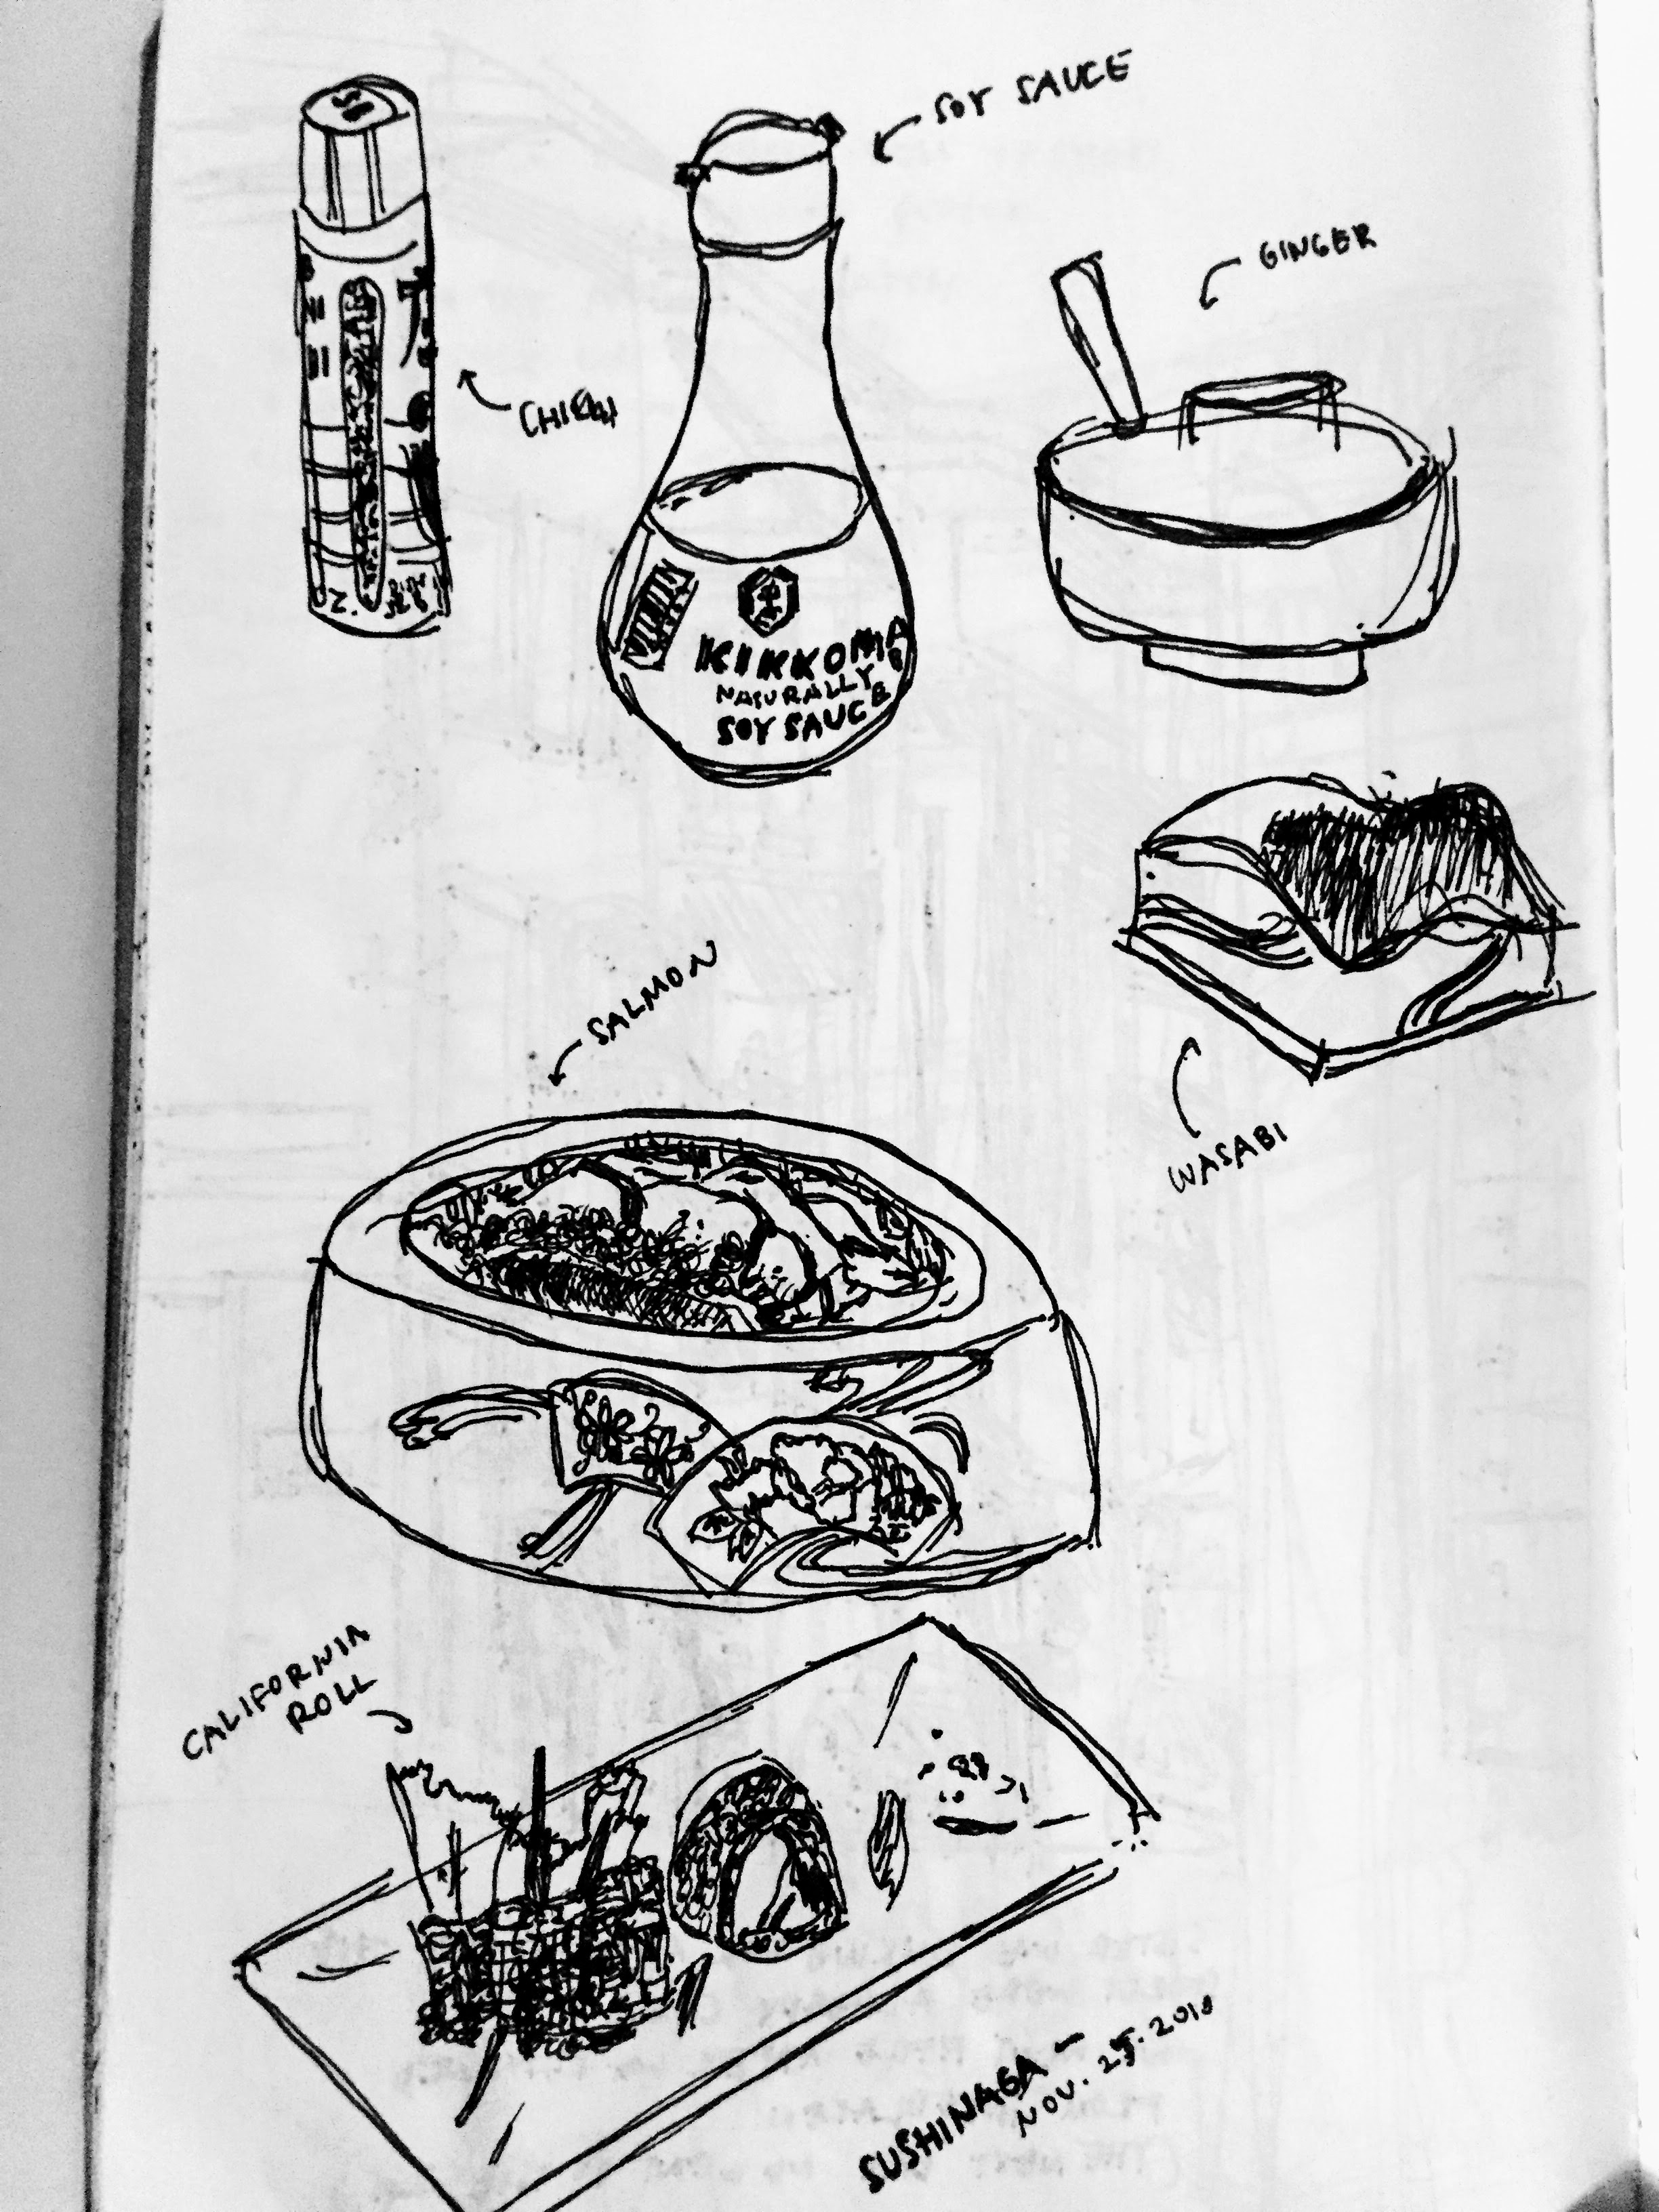 SOY SAUCE
GINGER
KIKKOMA
NATURALLY
SOY SAUCE
SALMON
WASABI
CALIFORNIA
ROLL
SUSHINAGA -
NOV. 25. 2010